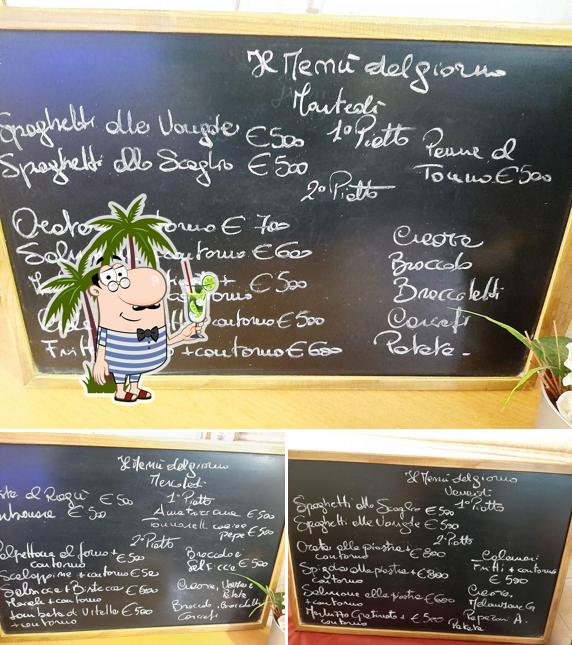 Il Menù del giorno
Martedì
Spaghetti alle Vongole €500
1º Piatto
Spaghetti allo Scoglio €500
Penne al
Tonno €500
2º Piatto
Orata €700
contorno €600
€500
contorno
contorno €500
+ contorno €600
Cicoria
Broccolo
Broccoletti
Carciofi
Patate -
Il Menù del giorno
Mercoledì
al Ragù €500
€500
1º Piatto
Amatriciana €500
Tonnarelli cacio e
pepe €500
2º Piatto
Polpettone al forno +
contorno €500
Scaloppine + contorno €500
Salsicce + Bistecca €600
+ contorno
di Vitella €500
+ contorno
Broccolo e
Salsicce €500
Cicoria, Verdure
Patate
Broccolo, Broccoletti
Carciofi
Il Menù del giorno
Venerdì
1º Piatto
Spaghetti allo Scoglio €500
Spaghetti alle Vongole €500
2º Piatto
Orata alla piastra +
contorno €800
Spigola alla piastra + €800
contorno
Salmone alla piastra €600
+ contorno
Merluzzo Gratinato + €500
contorno
Calamari
Fritti + contorno
€500
Cicoria,
Melanzane G
Peperoni A.
Patate